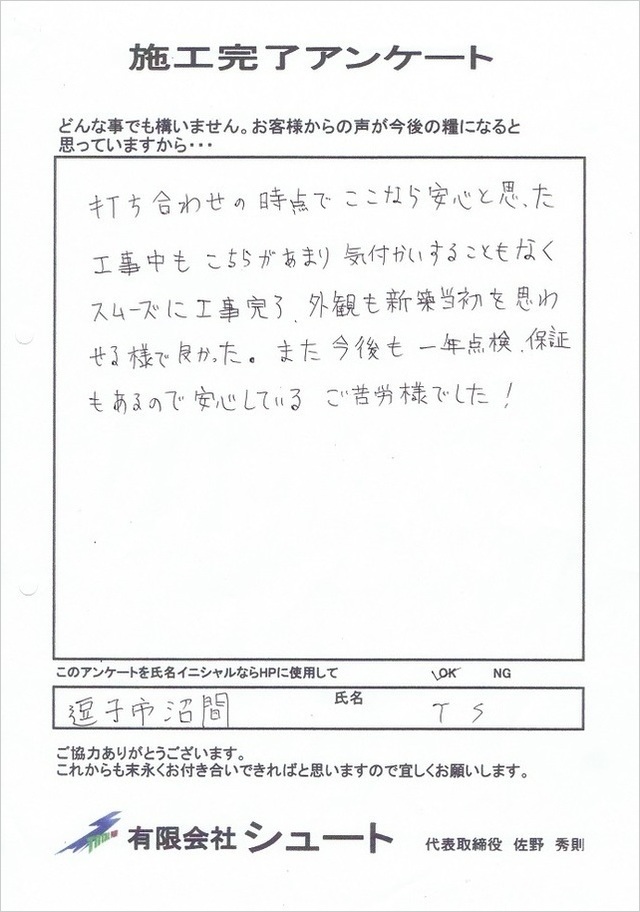 施工完了アンケート
どんな事でも構いません。お客様からの声が今後の糧になると
思っていますから・・・
打ち合わせの時点でここなら安心と思った
工事中もこちらがあまり気付かいすることもなく
スムーズに工事完了、外観も新築当初を思わ
せる様で良かった。また今後も一年点検、保証
もあるので安心している ご苦労様でした！
このアンケートを氏名イニシャルならHPに使用して OK NG
逗子市沼間 氏名 T S
ご協力ありがとうございます。
これからも末永くお付き合いできればと思いますので宜しくお願いします。
有限会社 シュート 代表取締役 佐野 秀則